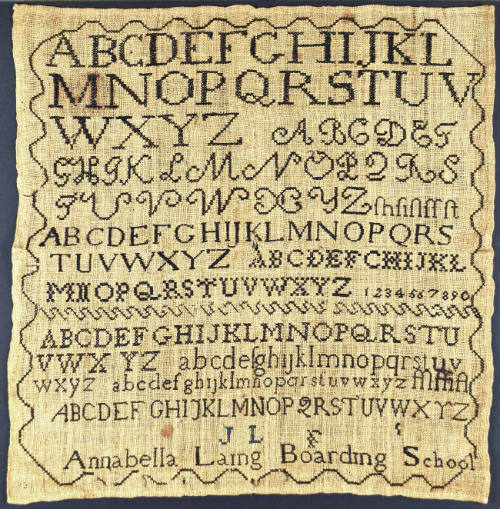 ABCDEFGHIJKL
MNOPQRSTUV
WXYZ ABCDEF
GHIKLMNOPQRS
TUVWXYZ
ABCDEFGHIJKLMNOPQRS
TUVWXYZ ABCDEFGHIJKL
MNOPQRSTUVWXYZ 1234567890
ABCDEFGHIJKLMNOPQRSTU
VWXYZ abcdefghijklmnopqrstuv
wxyz abcdefghijklmnopqrstuvwxyz
ABCDEFGHIJKLMNOPQRSTUVWXYZ
JL F S
Annabella Laing Boarding School